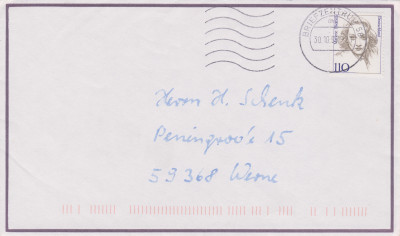 BRIEFZENTRUM
110
Herrn H. Schenk
Penningrode 15
59368 Werne